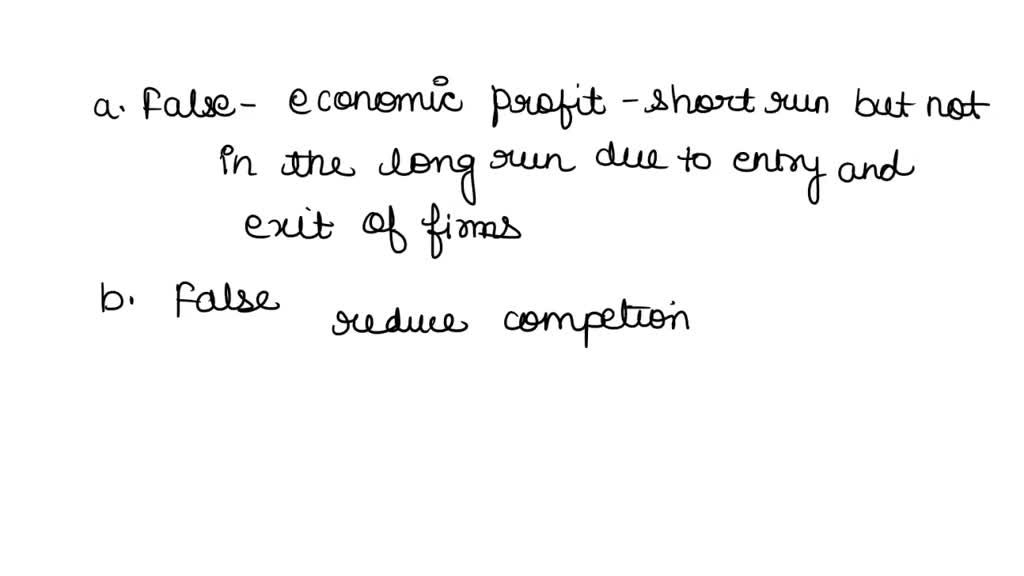 a. False - economic profit - short run but not
in the long run due to entry and
exit of firms
b. False reduce competion